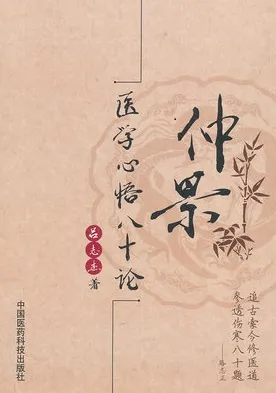 仲景
医学心悟八十论
吕志杰 著
追古索今修医道
参透伤寒八十题
——路志正
中国医药科技出版社